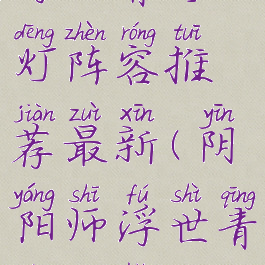 dēng zhèn róng tuī
灯阵容推
jiàn zuì xīn yīn
荐最新(阴
yáng shī fú shì qīng
阳师浮世青